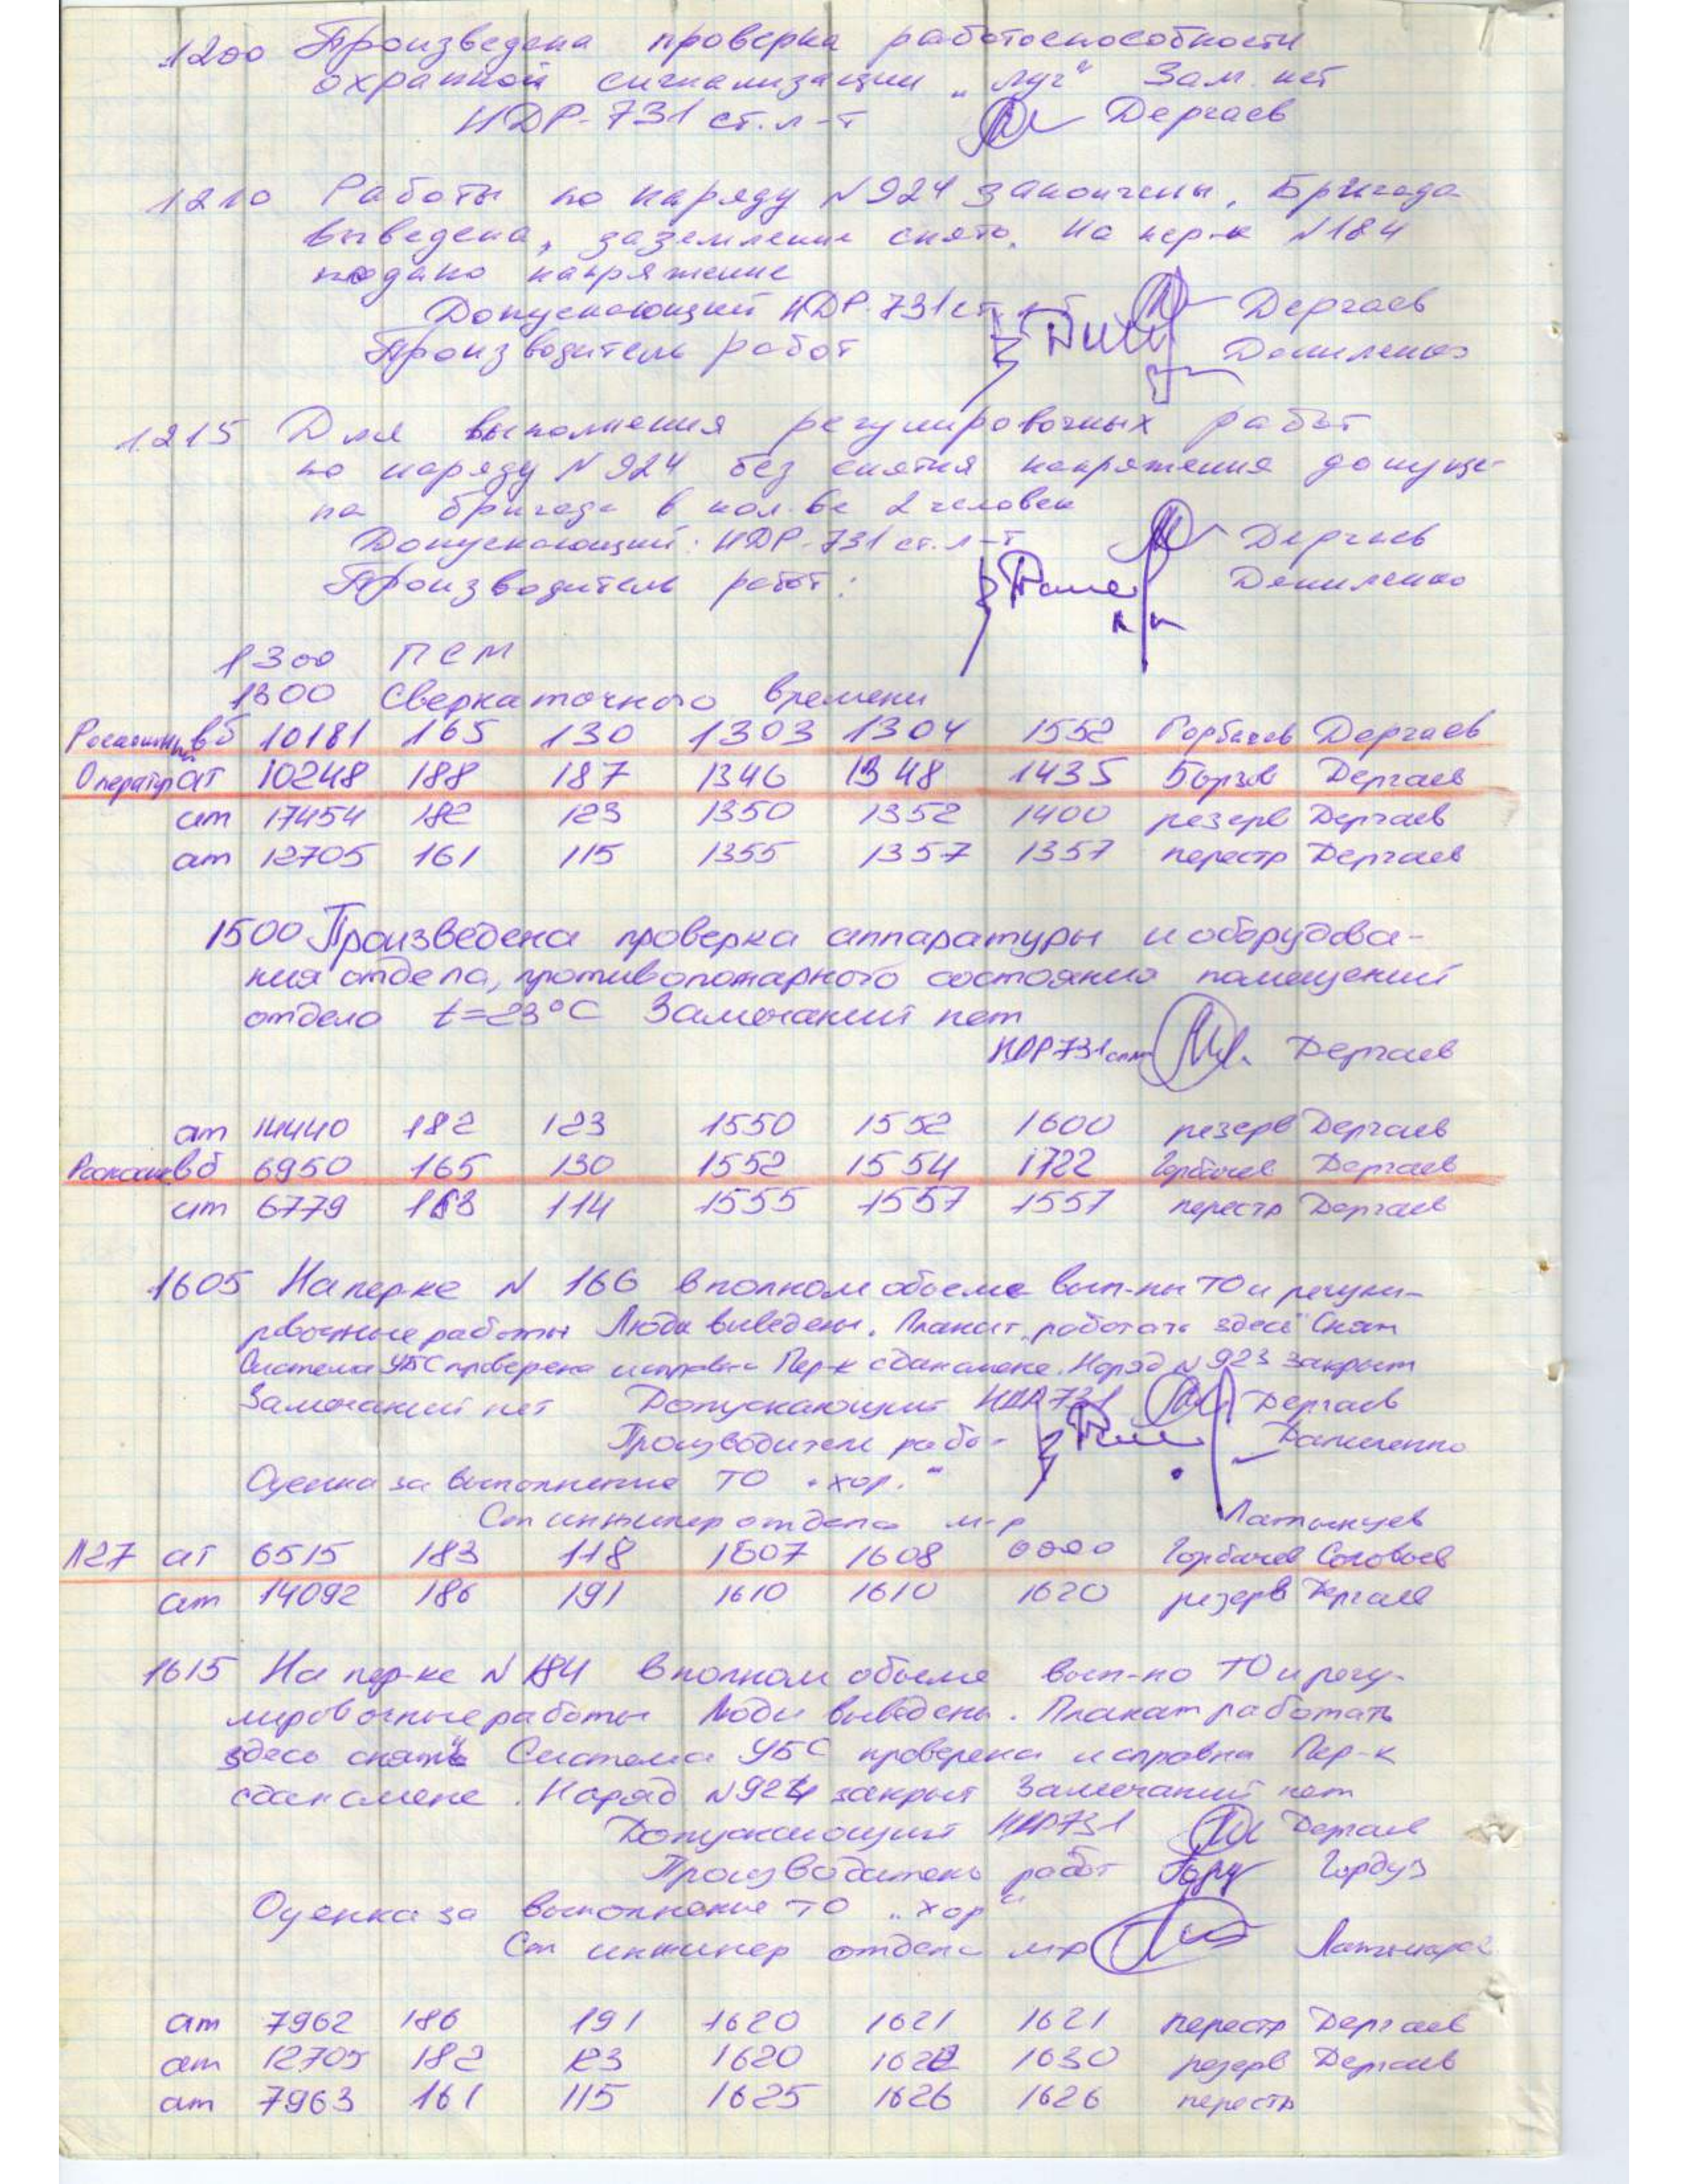 1200 Произведена проверка работоспособности
охранной сигнализации "Луг" Зам. нет
НДР-731 ст. л-т Дергаев
1210 Работы по наряду N 924 закончены. Бригада
выведена, заземление снято. На пер-к N 184
подано напряжение
Допускающий НДР-731 ст. Дергаев
Производитель работ Даниленко
1215 Для выполнения регулировочных работ
по наряду N 924 без снятия напряжения допуще-
на бригада в кол-ве 2 человек
Допускающий: НДР-731 ст. л-т Дергаев
Производитель работ: Даниленко
1300 ПСМ
1300 Сверка точного времени
вб 10181 165 130 1303 1304 1552 Горбачев Дергаев
Оператор ат 10248 188 187 1346 1348 1435 Борзов Дергаев
ат 17454 182 123 1350 1352 1400 резерв Дергаев
ат 12705 161 115 1355 1357 1357 перестр Дергаев
1500 Произведена проверка аппаратуры и оборудова-
ния отдела, противопожарного состояния помещений
отдела t=23°C Замечаний нет
НДР 731 Дергаев
ат 14440 182 123 1550 1552 1600 резерв Дергаев
вб 6950 165 130 1552 1554 1722 Горбачев Дергаев
ат 6779 163 114 1555 1557 1557 перестр Дергаев
1605 На пер-ке N 166 в полном объеме вып-ны ТО и регули-
ровочные работы Люди выведены. Плакат "работать здесь" Снят
Система УБС проверена исправна Пер-к сдан смене. Наряд N 923 закрыт
Замечаний нет Допускающий НДР 731 Дергаев
Производитель рабо- Даниленко
Оценка за выполнение ТО "хор."
Ст инженер отдела м-р Латынцев
N27 ат 6515 183 118 1607 1608 0000 Горбачев Соловьев
ат 14092 186 191 1610 1610 1620 резерв Дергаев
1615 На пер-ке N 184 в полном объеме вып-но ТО и регу-
лировочные работы Люди выведены. Плакат работать
здесь снят Система УБС проверена исправна Пер-к
сдан смене. Наряд N 924 закрыт Замечаний нет
Допускающий НДР 731 Дергаев
Производитель работ Гордуз
Оценка за выполнение ТО "хор"
Ст инженер отдела м-р Латынцев
ат 7962 186 191 1620 1621 1621 перестр Дергаев
ат 12705 182 123 1620 1622 1630 резерв Дергаев
ат 7963 161 115 1625 1626 1626 перестр